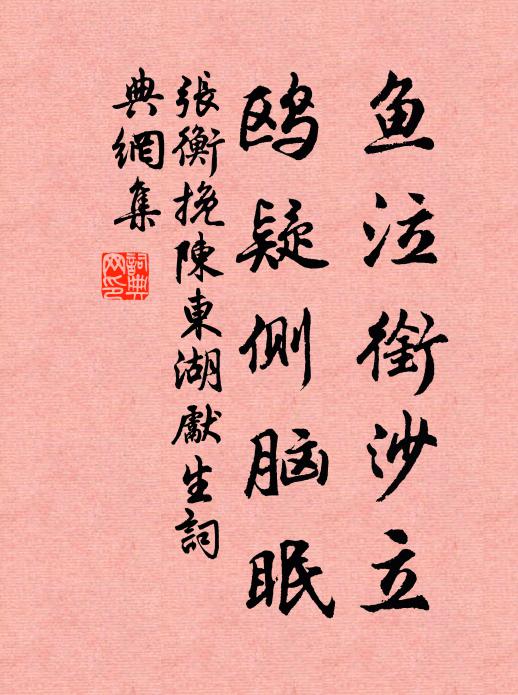 鱼泣衔沙立
鸥疑侧脑眠
張衡挽陳東湖獻生詞
典網集
詞典網印